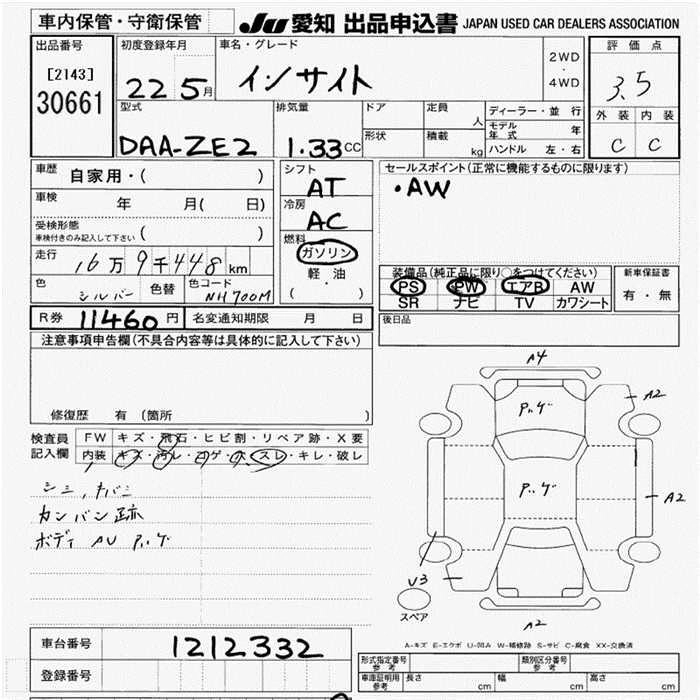 車内保管・守衛保管
JU 愛知 出品申込書 JAPAN USED CAR DEALERS ASSOCIATION
出品番号
[2143]
30661
初度登録年月
22 5月
車名・グレード
インサイト
2WD
・
4WD
評価点
3.5
外装 内装
C C
型式
DAA-ZE2
排気量
1.33CC
ドア
形状
定員
人
積載
kg
ディーラー・並行
モデル年式 年
ハンドル 左・右
車歴
自家用・( )
車検
年 月( 日)
受検形態
車検付きのみ記入して下さい ( )
走行
16万9千448km
色
シルバー
色替
色コード
NH700M
シフト
AT
冷房
AC
燃料
ガソリン
軽・油
( ・ )
セールスポイント(正常に機能するものに限ります)
・AW
装備品(純正品に限り○をつけてください)
PS PW エアB AW
SR ナビ TV カワシート
新車保証書
有・無
R券 11460円
名変通知期限 月 日
後日品
注意事項申告欄(不具合内容等は具体的に記入して下さい)
修復歴 有(箇所 )
検査員
記入欄
FW キズ・飛石・ヒビ割・リペア跡・X要
内装 キズ・汚レ・コゲ・穴・スレ・キレ・破レ
シミ、タバコ
カンバン跡
ボディ AU ハゲ
A4
ハゲ
A2
ハゲ
A2
U3
スペア
A2
A-キズ E-エクボ U-凹み W-補修跡 S-サビ C-腐食 XX-交換済
車台番号
1212332
登録番号
形式指定番号
参考
類別区分番号
参考
車庫証明用
参考
長さ cm 幅 cm 高さ cm